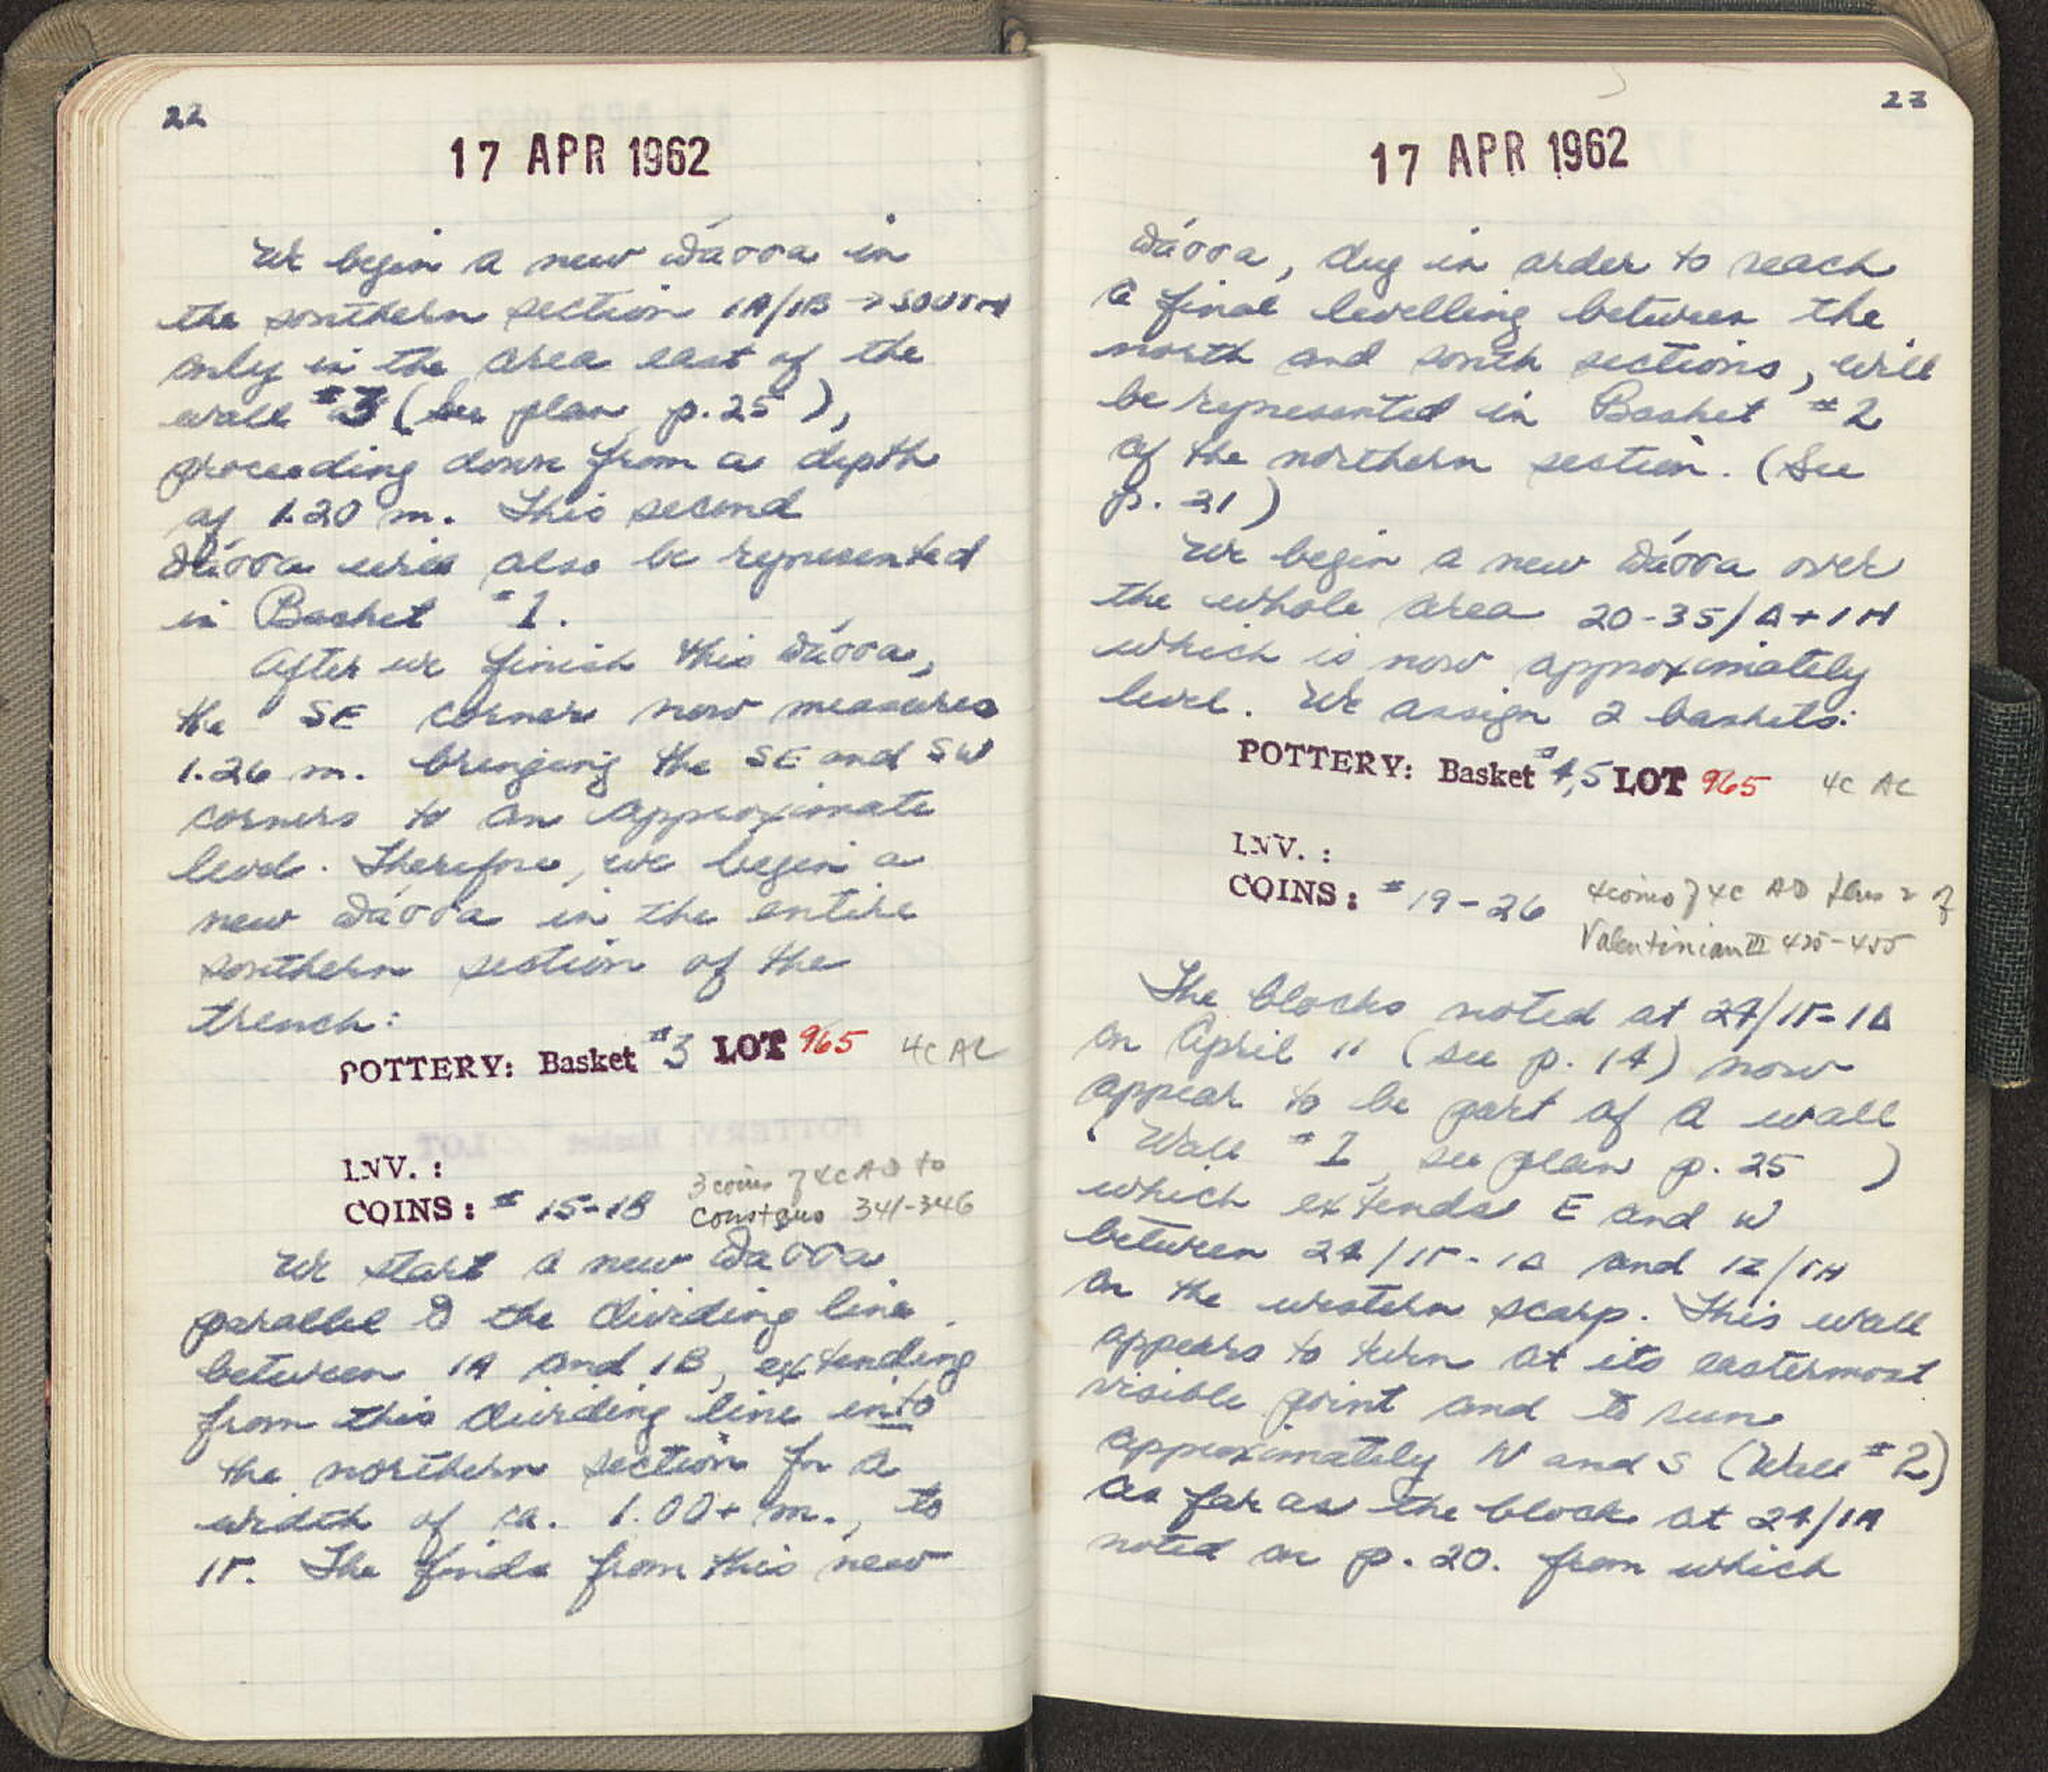 22
17 APR 1962
We begin a new πάσσα in
the southern section 1A/1B → SOUTH
only in the area east of the
wall #3 (see plan p. 25),
proceeding down from a depth
of 1.20 m. This second
πάσσα will also be represented
in Basket #1.
After we finish this πάσσα,
the SE corner now measures
1.26 m. bringing the SE and SW
corners to an approximate
level. Therefore, we begin a
new πάσσα in the entire
southern section of the
trench:
POTTERY: Basket #3 LOT 965 4C AC
INV. :
COINS: # 15-18 3 coins of 4C AD to
Constans 341-346
We start a new πάσσα
parallel to the dividing line
between 1A and 1B, extending
from this dividing line into
the northern section for a
width of ca. 1.00+ m., to
1Γ. The finds from this new
23
17 APR 1962
πάσσα, dug in order to reach
a final levelling between the
north and south sections, will
be represented in Basket #2
of the northern section. (See
p. 21)
We begin a new πάσσα over
the whole area 20-35/Δ+1H
which is now approximately
level. We assign 2 baskets:
POTTERY: Basket #4,5 LOT 965 4C AC
INV. :
COINS: # 19-26 4 coins of 4C AD plus 2 of
Valentinian III 425-455
The blocks noted at 24/1Γ-1Δ
on April 11 (see p. 14) now
appear to be part of a wall
(Wall #1, see plan p. 25 )
which extends E and W
between 24/1Γ-1Δ and 12/1H
on the western scarp. This wall
appears to turn at its easternmost
visible point and to run
approximately N and S (Wall #2)
as far as the block at 24/1A
noted on p. 20. from which